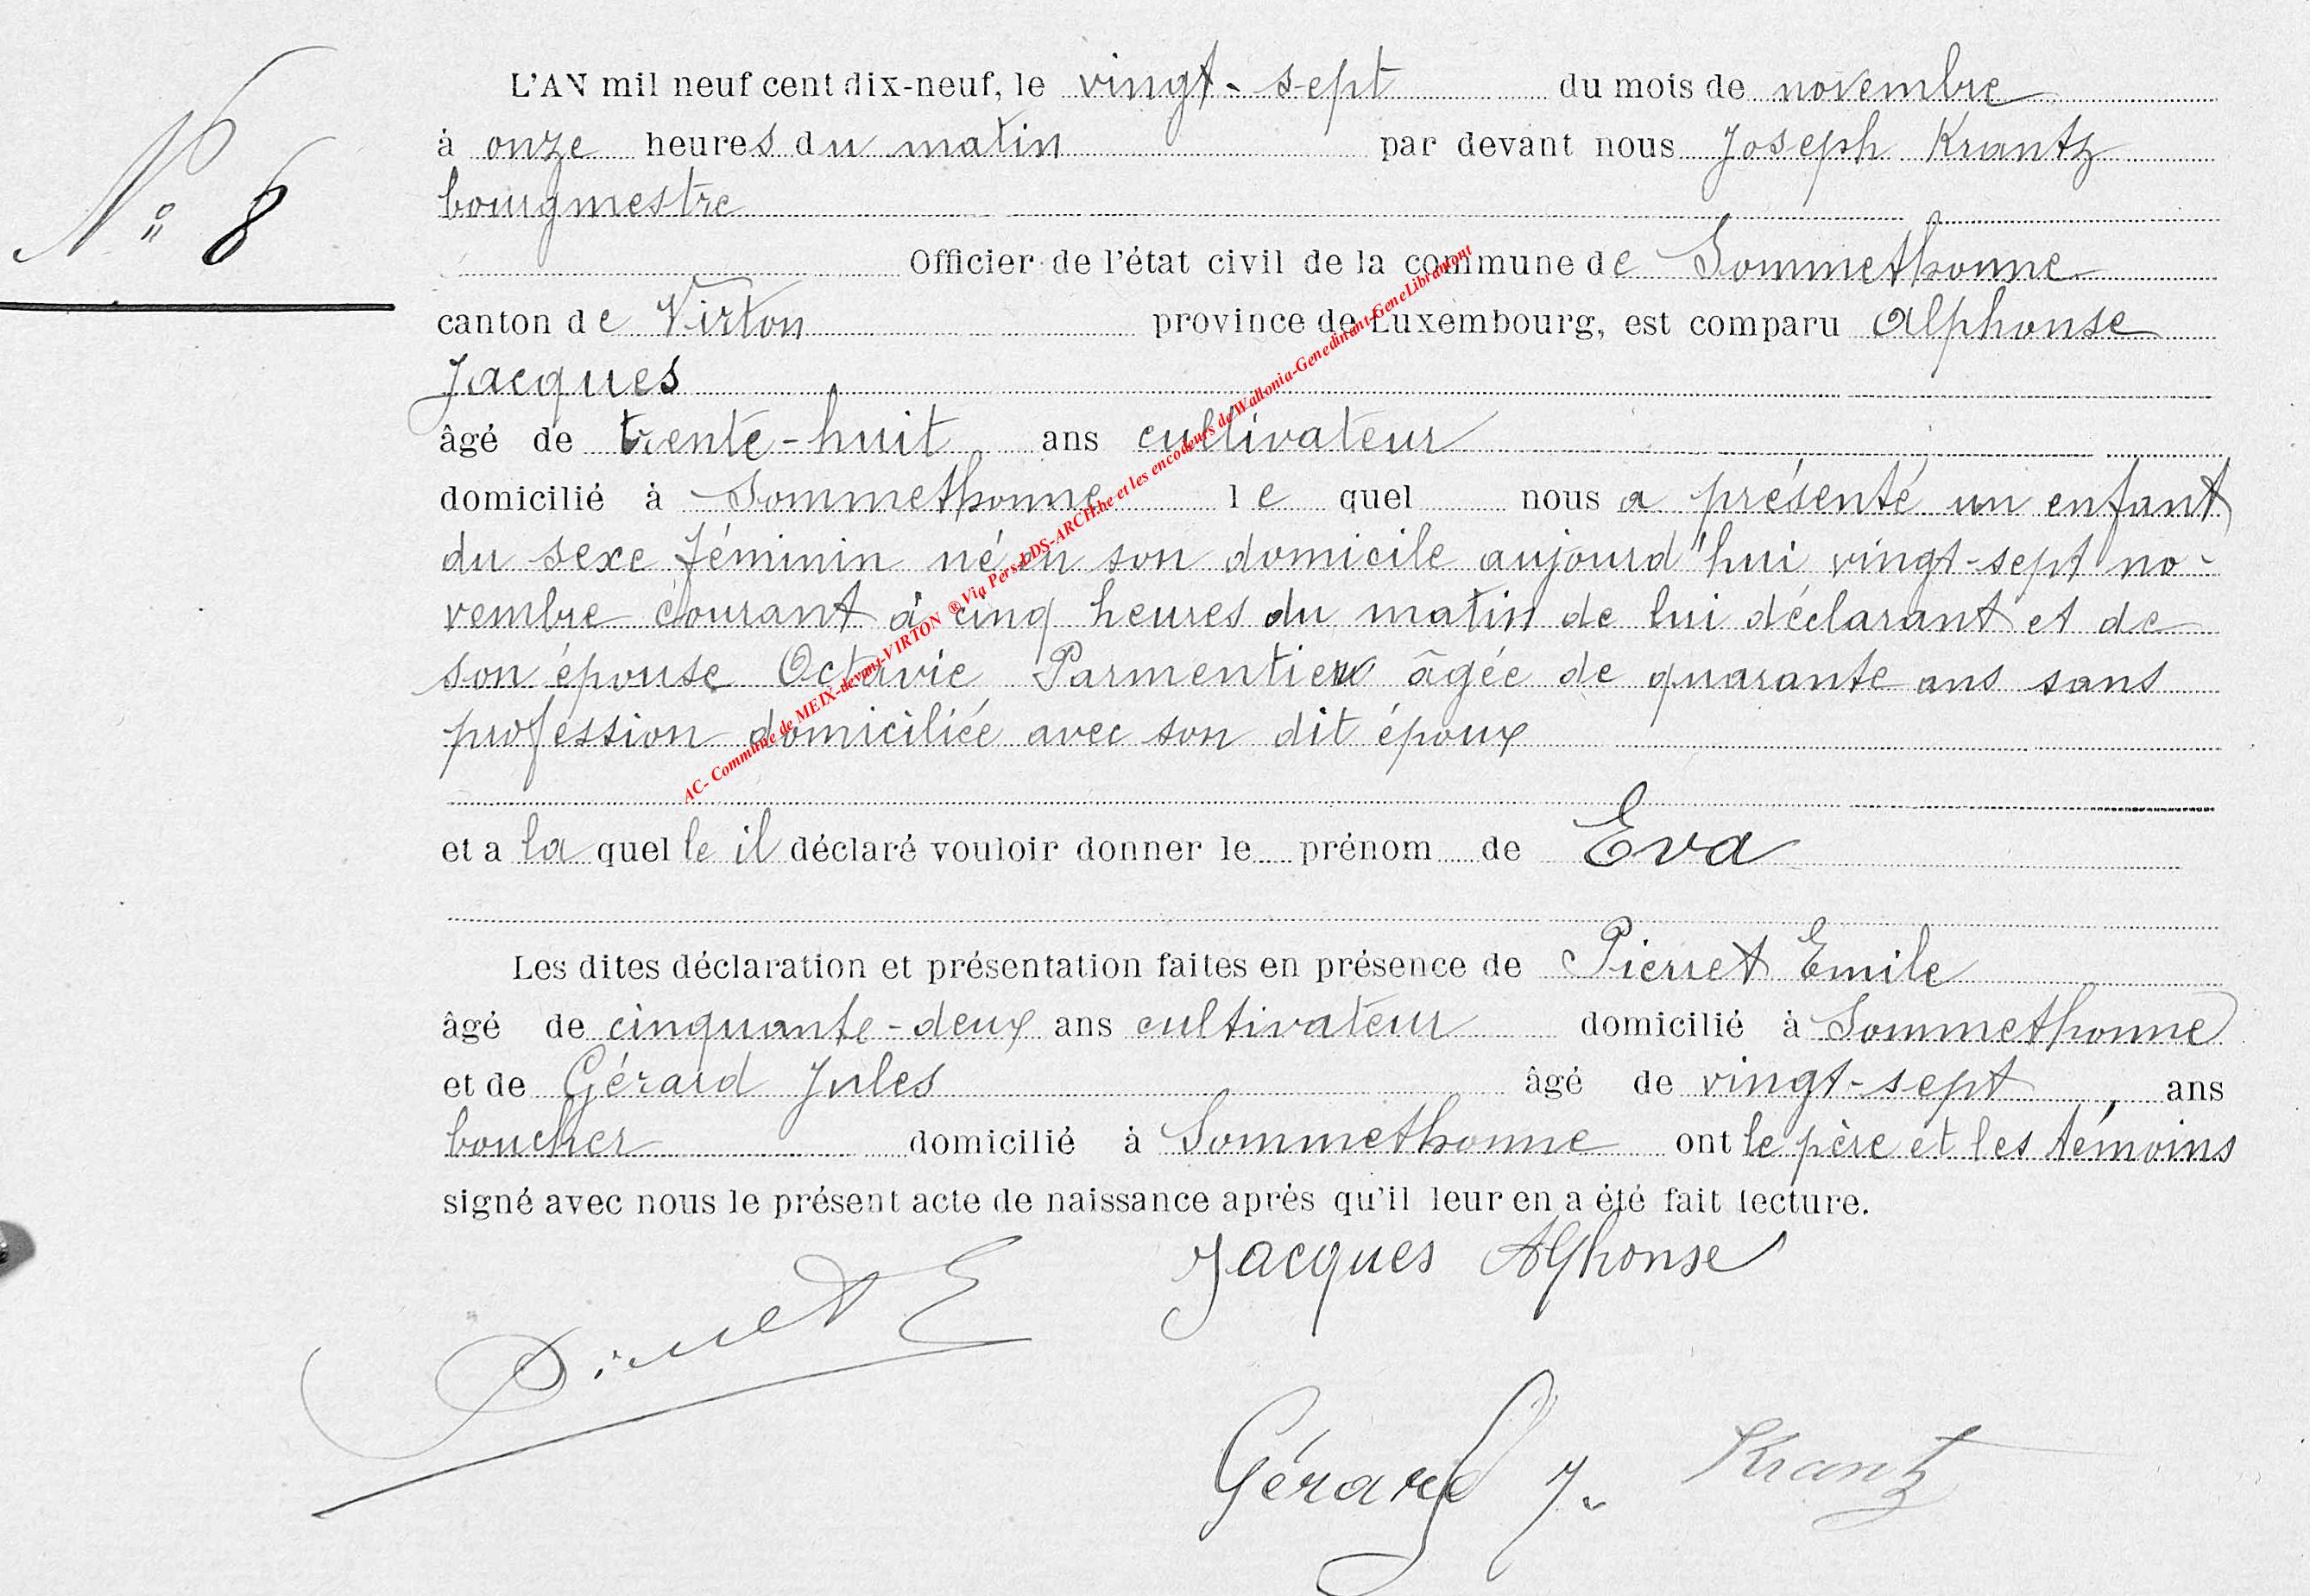 N° 8
L'AN mil neuf cent dix-neuf, le vingt-sept du mois de novembre
à onze heures du matin par devant nous Joseph Krantz
bourgmestre
Officier de l'état civil de la commune de Sommethonne
canton de Virton province de Luxembourg, est comparu Alphonse
Jacques
âgé de trente-huit ans cultivateur
domicilié à Sommethonne le quel nous a présenté un enfant
du sexe féminin né en son domicile aujourd'hui vingt-sept no-
vembre courant à cinq heures du matin de lui déclarant et de
son épouse Octavie Parmentier âgée de quarante ans sans
profession domiciliée avec son dit époux
et a la quelle il déclaré vouloir donner le prénom de Eva
Les dites déclaration et présentation faites en présence de Pierret Emile
âgé de cinquante-deux ans cultivateur domicilié à Sommethonne
et de Gérard Jules âgé de vingt-sept ans
boucher domicilié à Sommethonne ont le père et les témoins
signé avec nous le présent acte de naissance après qu'il leur en a été fait lecture.
Jacques Alphonse
Pierret E
Gérard J.
Krantz
AC- Commune de MEIX-devant-VIRTON ® Via Pers-LDS-ARCH.be et les encodeurs de Wallonia-Genedinant-GeneLibramont